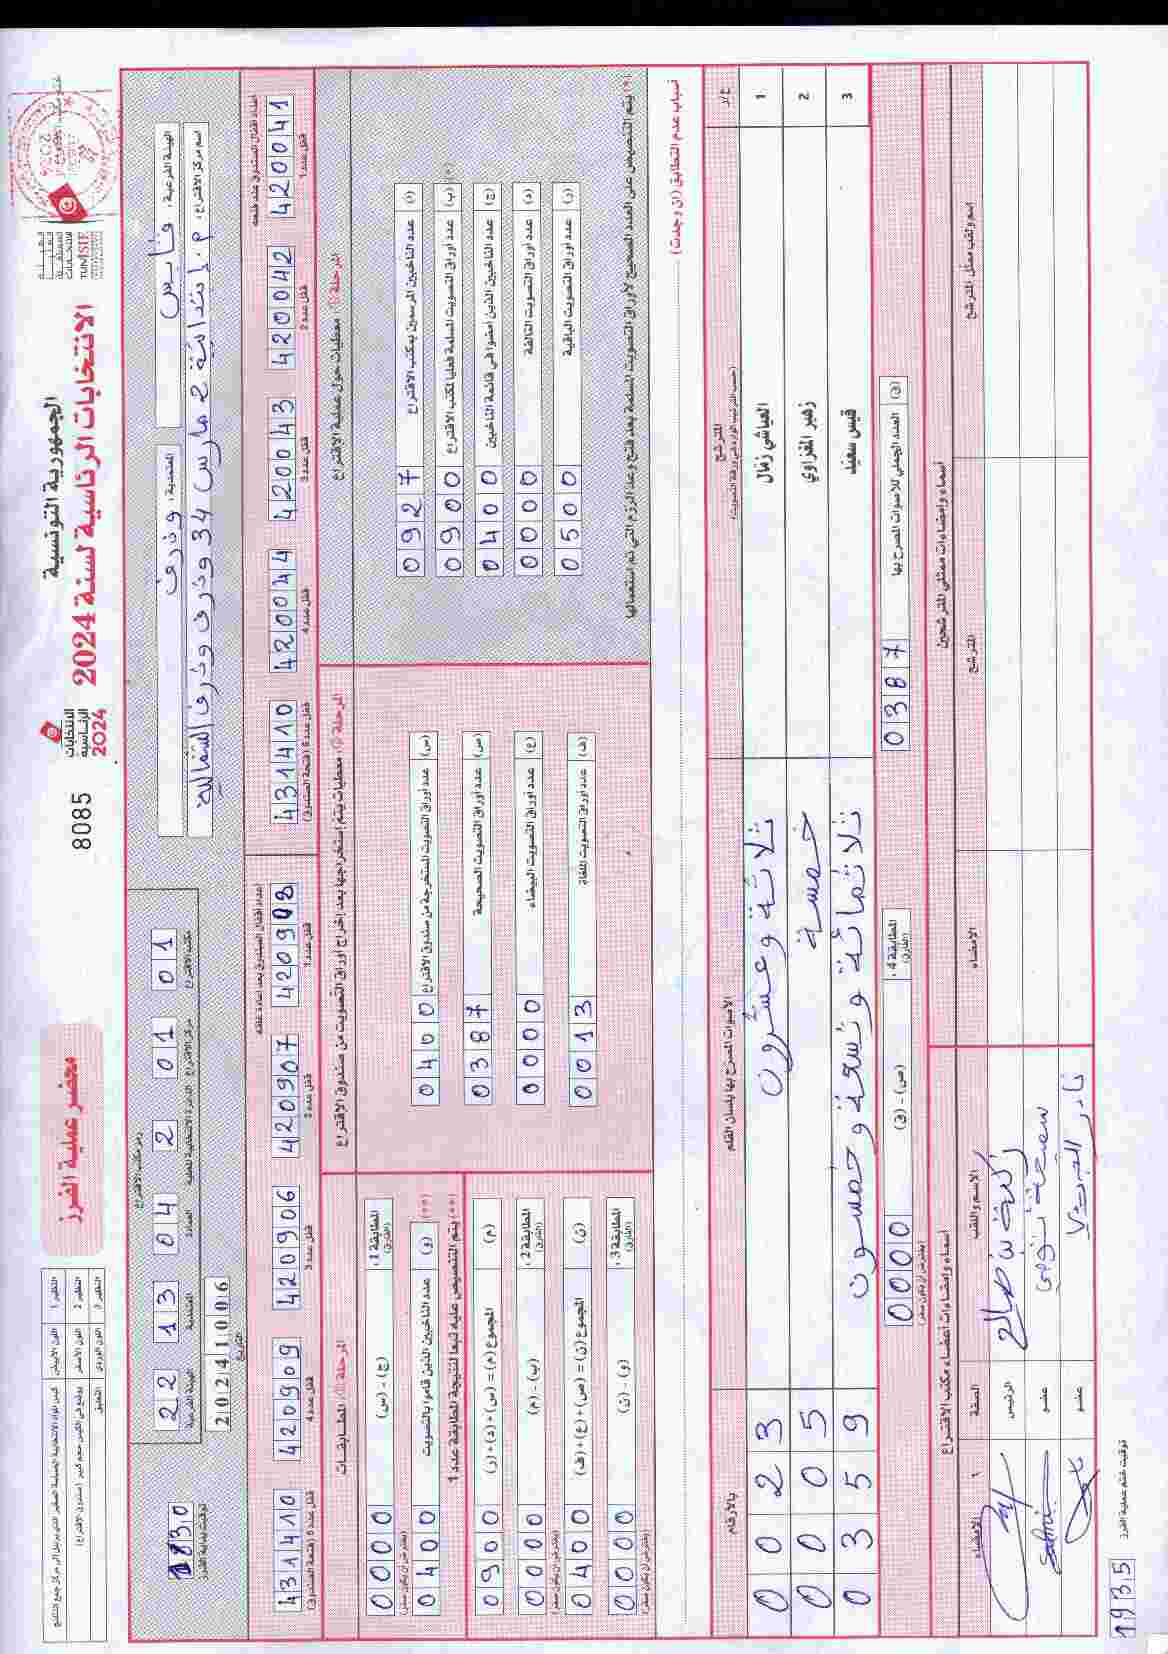 الجمهورية التونسية
الانتخابات الرئاسية لسنة 2024
الانتخابات
الرئاسية
2024
8085
محضر عملية الفرز
TUNISIE
النظير 1
اللون الأبيض
النظير 2
اللون الأصفر
النظير 3
اللون الوردي
التعليق
الهيئة الفرعية: قابس
المعتمدية: وذرف
اسم مركز الاقتراع: م. ابتدائية 2 مارس 34 وذرف وذرف الشمالية
رمز مكتب الاقتراع
22 13 04 2 001 01
الهيئة الفرعية
المعتمدية
العمادة
الدائرة الانتخابية المحلية
مركز الاقتراع
مكتب الاقتراع
20241006
التاريخ
1830
توقيت بداية الفرز
أعداد أقفال الصندوق عند فتحه
420041
قفل عدد 1
420042
قفل عدد 2
420043
قفل عدد 3
420044
قفل عدد 4
431410
قفل عدد 5 (فتحة الصندوق)
أعداد أقفال الصندوق بعد إعادة غلقه
420908
قفل عدد 1
420907
قفل عدد 2
420906
قفل عدد 3
420909
قفل عدد 4
431410
قفل عدد 5 (فتحة الصندوق)
المرحلة 1: معطيات حول عملية الاقتراع
(أ) عدد الناخبين المرسمين بمكتب الاقتراع 0927
(ب) عدد أوراق التصويت المسلمة فعليا لمكتب الاقتراع 0900 (*)
(ج) عدد الناخبين الذين امضوا في قائمة الناخبين 0400
(د) عدد أوراق التصويت التالفة 0000
(ر) عدد أوراق التصويت الباقية 0500
(*) يتم التنصيص على العدد الصحيح لأوراق التصويت المسلمة بعد فتح وعد الرزم التي تم استعمالها
المرحلة 2: معطيات يتم استخراجها بعد إخراج أوراق التصويت من صندوق الاقتراع
(س) عدد أوراق التصويت المستخرجة من صندوق الاقتراع 0400
(ص) عدد أوراق التصويت الصحيحة 0387
(ع) عدد أوراق التصويت البيضاء 0000
(ف) عدد أوراق التصويت الملغاة 0013
المرحلة 3: المطابقات
المطابقة 1: (الفارق) (ج) - (س) 0000
(يفترض أن يكون صفر)
(و) عدد الناخبين الذين قاموا بالتصويت 0400 (**)
(**) يتم التنصيص عليه تبعا لنتيجة المطابقة عدد 1
(م) المجموع (م) = (س) + (د) + (ر) 0900
المطابقة 2: (الفارق) (ب) - (م) 0000
(يفترض أن يكون صفر)
(ن) المجموع (ن) = (ص) + (ع) + (ف) 0400
المطابقة 3: (الفارق) (و) - (ن) 0000
(يفترض أن يكون صفر)
أسباب عدم التطابق (إن وجدت)
ع/ر
المترشح
(حسب الترتيب الوارد في ورقة التصويت)
الأصوات المصرح بها بلسان القلم
بالأرقام
1 العياشي زمال ثلاثة وعشرون 0023
2 زهير المغزاوي خمسة 0005
3 قيس سعيد ثلاثمائة وتسعة وخمسون 0359
(ق) العدد الجملي للأصوات المصرح بها 0387
المطابقة 4: (الفارق) (ص) - (ق) 0000
(يفترض أن يكون صفر)
أسماء وإمضاءات ممثلي المترشحين
اسم ولقب ممثل المترشح
المترشح
الامضاء
أسماء وإمضاءات أعضاء مكتب الاقتراع
الاسم واللقب
الصفة
الامضاء
الرئيس
عضو
عضو
1935
توقيت ختم عملية الفرز